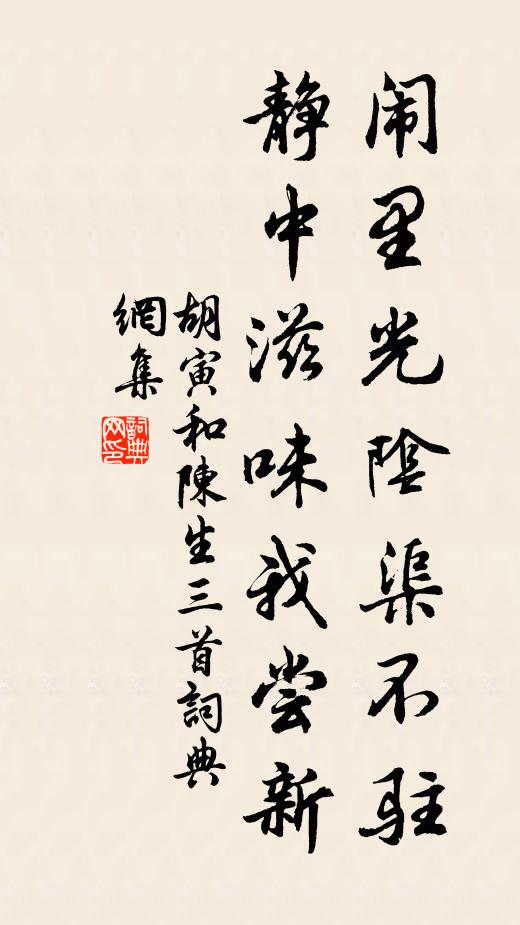 闹里光陰渠不駐
静中滋味我尝新
胡寅和陳生三首詞典
網集
詞典網印